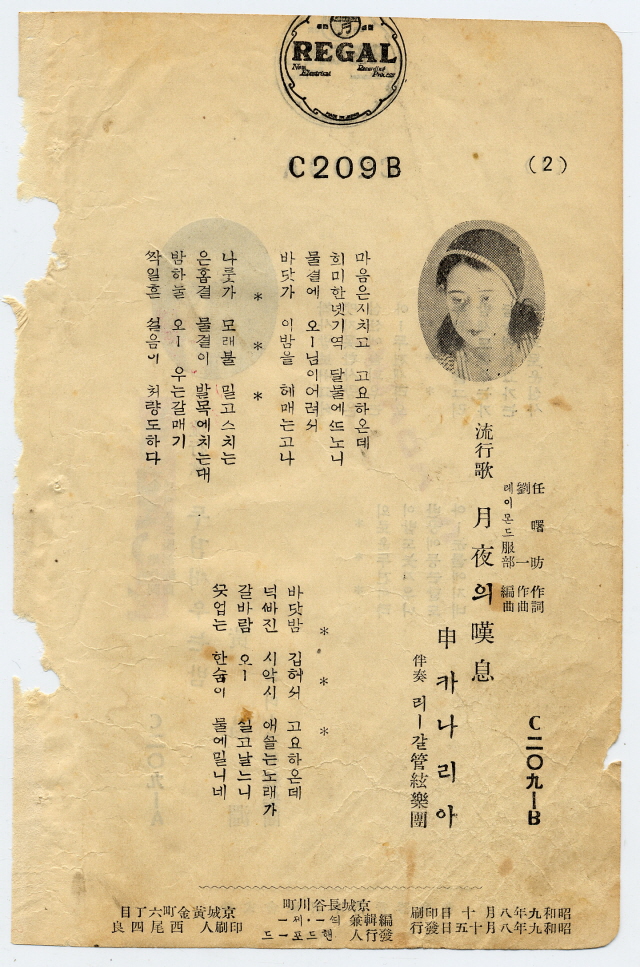 REGAL
New Electrical Recording Process
MADE IN JAPAN
C209B
(2)
C二〇九ーB
任曙昉 作詞
劉一 作曲
레이몬드服部 編曲
流行歌 月夜의嘆息
申카나리아
伴奏 리ー갈管絃樂團
마음은지치고 고요하온데
희미한녯기억 달물에쓰노니
물결에 오ー님이어려서
바닷가 이밤을 헤매는고나
* * *
나룻가 모래불 밀고스치는
은홈결 물결이 발목에치는대
밤하눌 오ー 우는갈매기
짝일흔 설음이 처량도하다
* * *
바닷밤 깁허서 고요하온데
넉빠진 시악시 애끌는노래가
갈바람 오ー 실고날느니
끗업는 한숨이 물에밀니네
昭和九年八月十日印刷
昭和九年八月十五日發行
京城長谷川町
編輯兼發行人 핸드포ー드
京城黃金町六丁目
印刷人 西尾四良